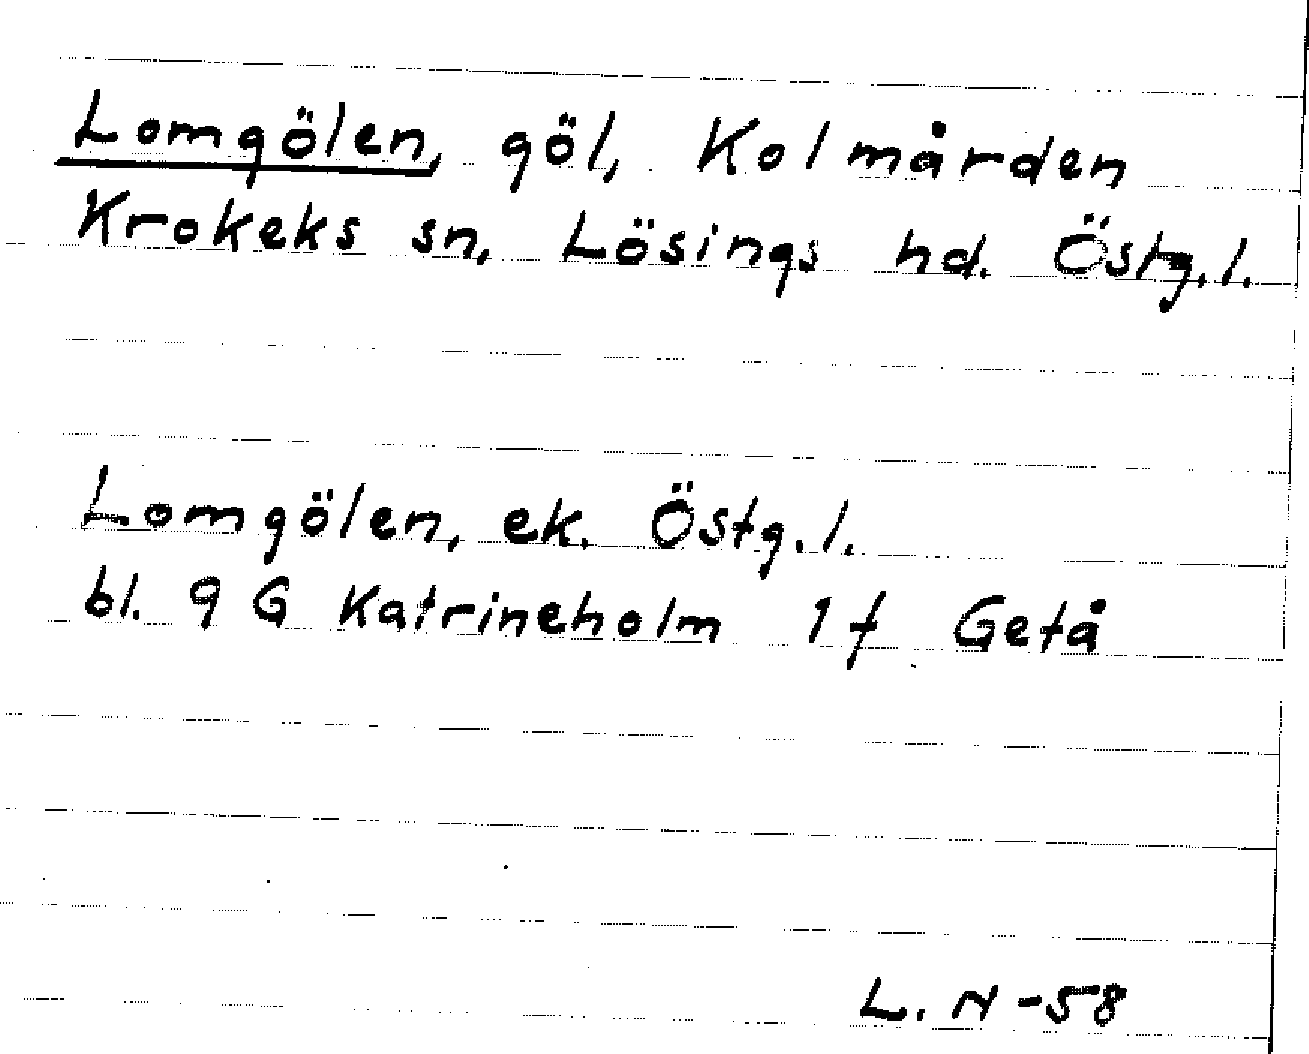 Lomgölen, göl, Kolmården
Krokeks sn, Lösings hd. Östg.l.
Lomgölen, ek. Östg.l.
bl. 9 G Katrineholm 1 f Getå
L. N -58